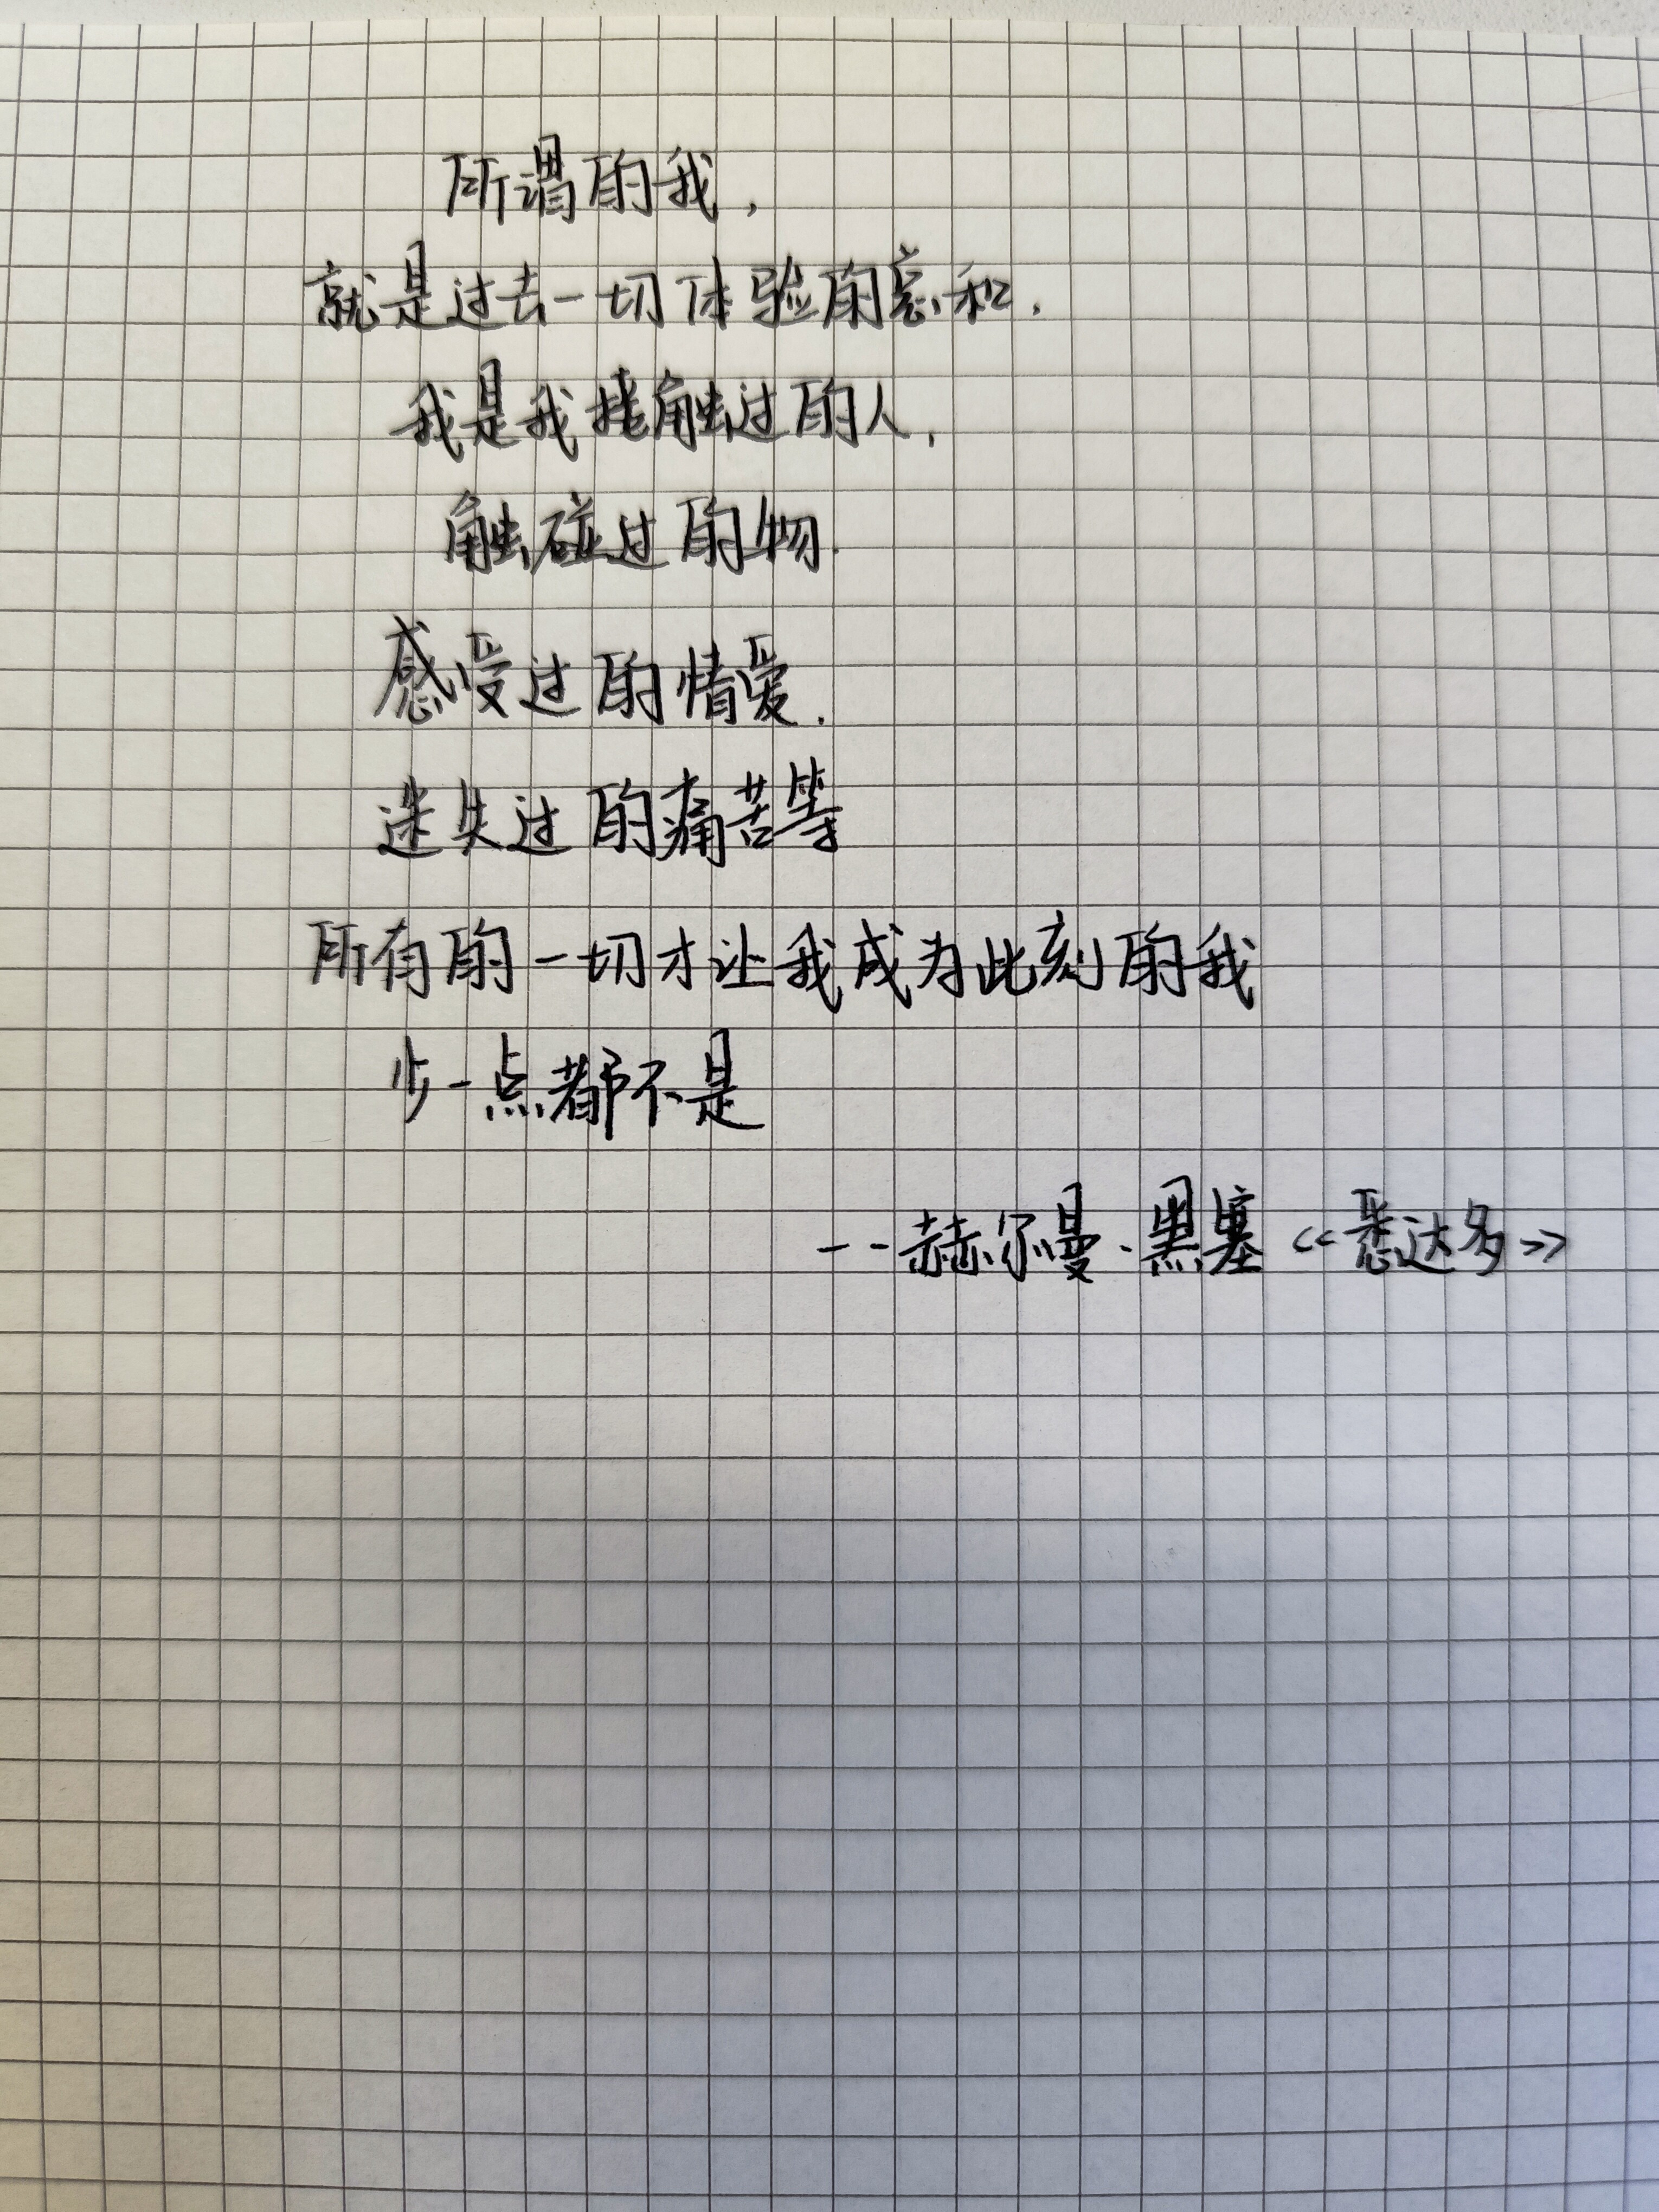 所谓的我,
就是过去一切体验的总和.
我是我接触过的人,
触碰过的物.
感受过的情爱.
迷失过的痛苦等
所有的一切才让我成为此刻的我
少一点都不是
--赫尔曼·黑塞《悉达多》